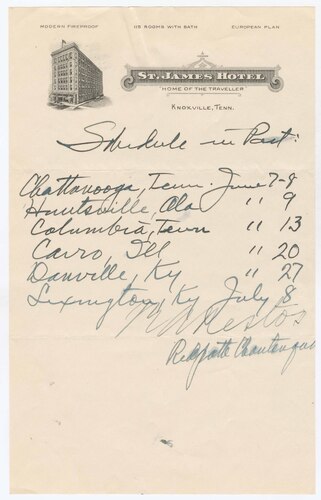 MODERN FIREPROOF 115 ROOMS WITH BATH EUROPEAN PLAN
ST. JAMES HOTEL
"HOME OF THE TRAVELLER"
KNOXVILLE, TENN.
Schedule in Part:
Chattanooga, Tenn. June 7-8
Huntsville, Ala " 9
Columbia, Tenn " 13
Cairo, Ill " 20
Danville, Ky " 27
Lexington, Ky July 8
Redpath Chautauqua